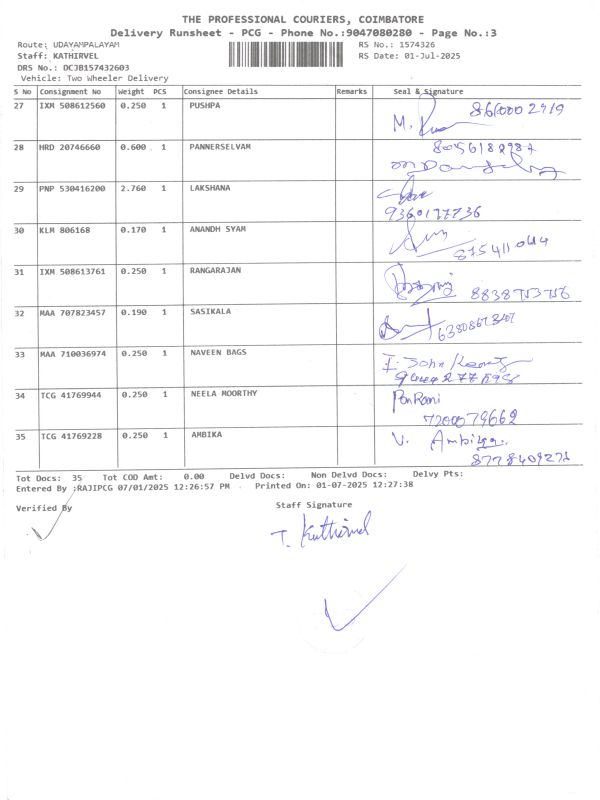 THE PROFESSIONAL COURIERS, COIMBATORE
Delivery Runsheet - PCG - Phone No.:9047080280 - Page No.:3
Route: UDAYAMPALAYAM RS No.: 1574326
Staff: KATHIRVEL RS Date: 01-Jul-2025
DRS No.: DCJB157432603
Vehicle: Two Wheeler Delivery
S No Consignment No Weight PCS Consignee Details Remarks Seal & Signature
27 IXM 508612560 0.250 1 PUSHPA
M.
28 HRD 20746660 0.600 1 PANNERSELVAM
29 PNP 530416200 2.760 1 LAKSHANA
9360177736
30 KLM 806168 0.170 1 ANANDH SYAM
31 IXM 508613761 0.250 1 RANGARAJAN
32 MAA 707823457 0.190 1 SASIKALA
33 MAA 710036974 0.250 1 NAVEEN BAGS
I. John
34 TCG 41769944 0.250 1 NEELA MOORTHY
7200079662
35 TCG 41769228 0.250 1 AMBIKA V.
8778409271
Tot Docs: 35 Tot COD Amt: 0.00 Delvd Docs: Non Delvd Docs: Delvy Pts:
Entered By :RAJIPCG 07/01/2025 12:26:57 PM Printed On: 01-07-2025 12:27:38
Verified By Staff Signature
T. Kathirvel